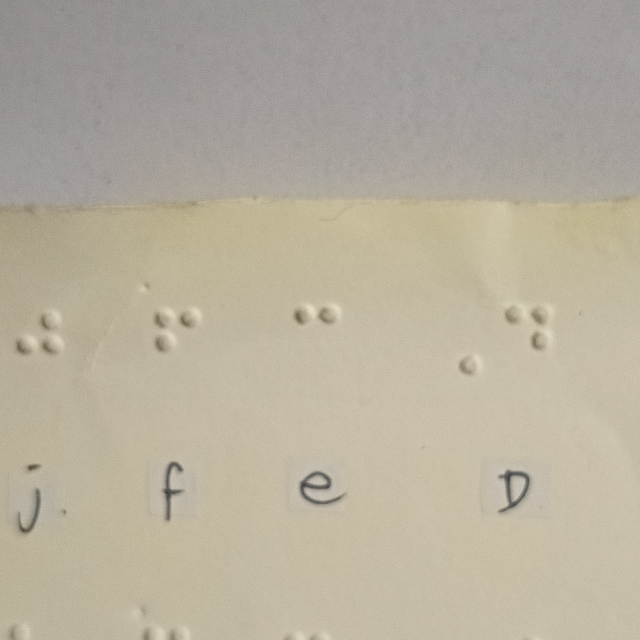 ⠚ ⠋ ⠉ ⠠⠙
j f e D